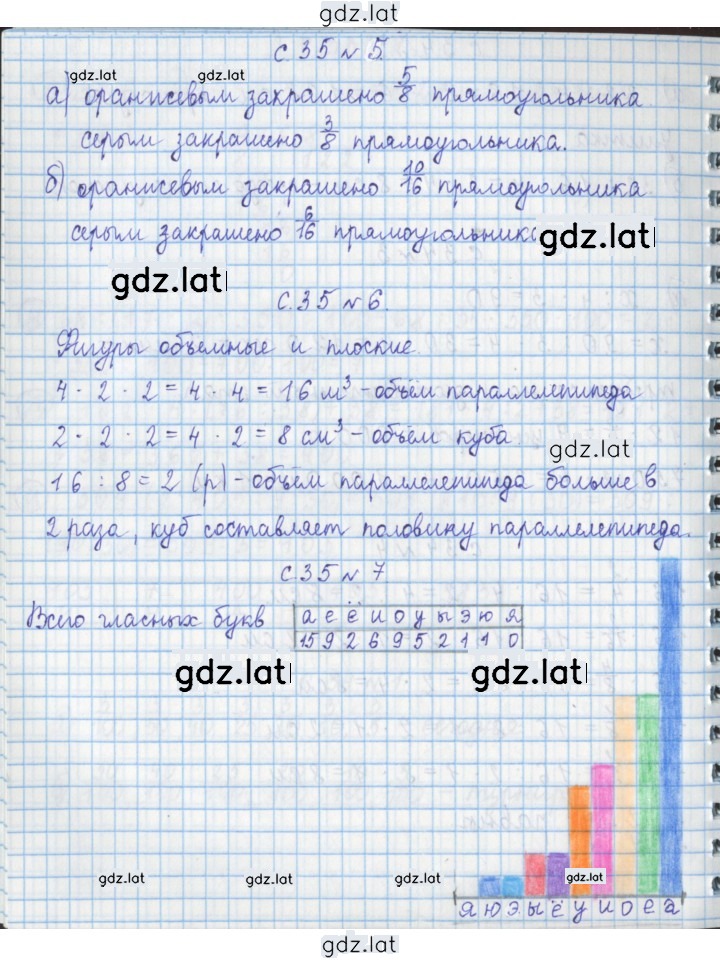 gdz.lat
с. 35 № 5.
gdz.lat gdz.lat
а) оранжевым закрашено 5/8 прямоугольника
серым закрашено 3/8 прямоугольника.
б) оранжевым закрашено 10/16 прямоугольника.
серым закрашено 6/16 прямоугольника
gdz.lat
gdz.lat
с. 35 № 6.
Фигуры объемные и плоские.
4 · 2 · 2 = 4 · 4 = 16 м³ - объём параллелепипеда
2 · 2 · 2 = 4 · 2 = 8 см³ - объём куба.
gdz.lat
16 : 8 = 2 (р) - объём параллелепипеда больше в
2 раза, куб составляет половину параллелепипеда.
с. 35 № 7
Всего гласных букв
а е ё и о у ы э ю я
15 9 2 6 9 5 2 1 1 0
gdz.lat gdz.lat
gdz.lat gdz.lat gdz.lat gdz.lat
я ю э ы ё у и о е а
gdz.lat